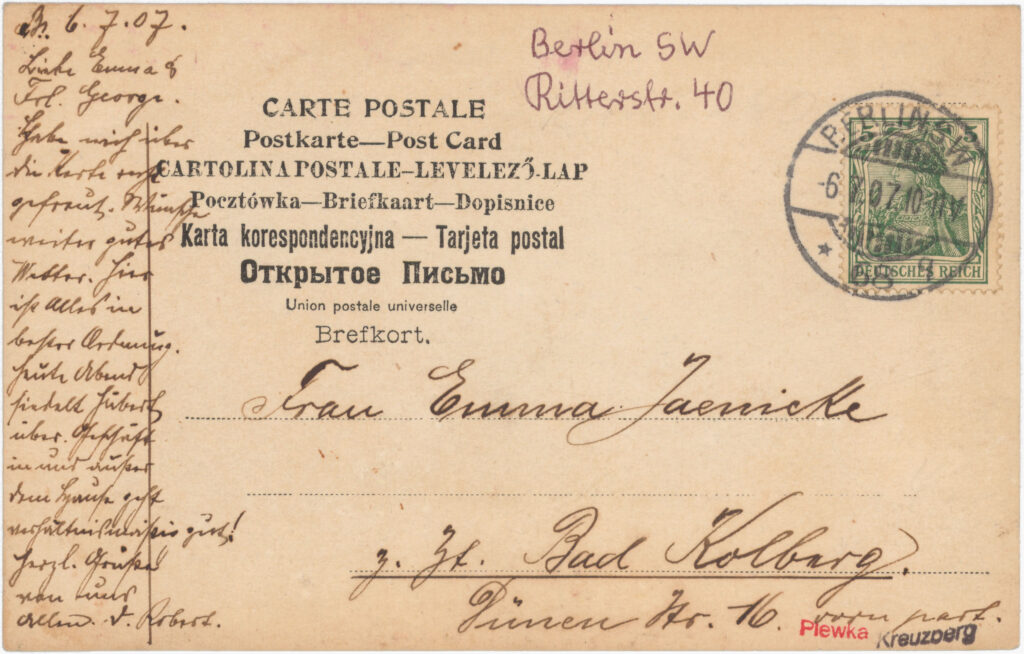 B. 6.7.07.
Liebe Emma &
Frl. George.
Habe mich über
die Karte recht
gefreut. Wünsche
weiter gutes
Wetter. Hier
ist Alles in
bester Ordnung.
Heute Abend
siedelt Hubert
über. Geschäft
in und außer
dem Hause geht
verhältnismäßig gut!
Herzl. Grüße
von uns
Allen. d. Robert.
Berlin SW
Ritterstr. 40
CARTE POSTALE
Postkarte—Post Card
CARTOLINA POSTALE–LEVELEZŐ-LAP
Pocztówka—Briefkaart—Dopisnice
Karta korespondencyjna — Tarjeta postal
Открытое Письмо
Union postale universelle
Brefkort.
5 5
DEUTSCHES REICH
BERLIN SW
6.7.07.10-11V
* 68 q
Frau Emma Jaenicke
z. Zt. Bad Kolberg.
Dünen Str. 16. vorn part.
Plewka Kreuzberg